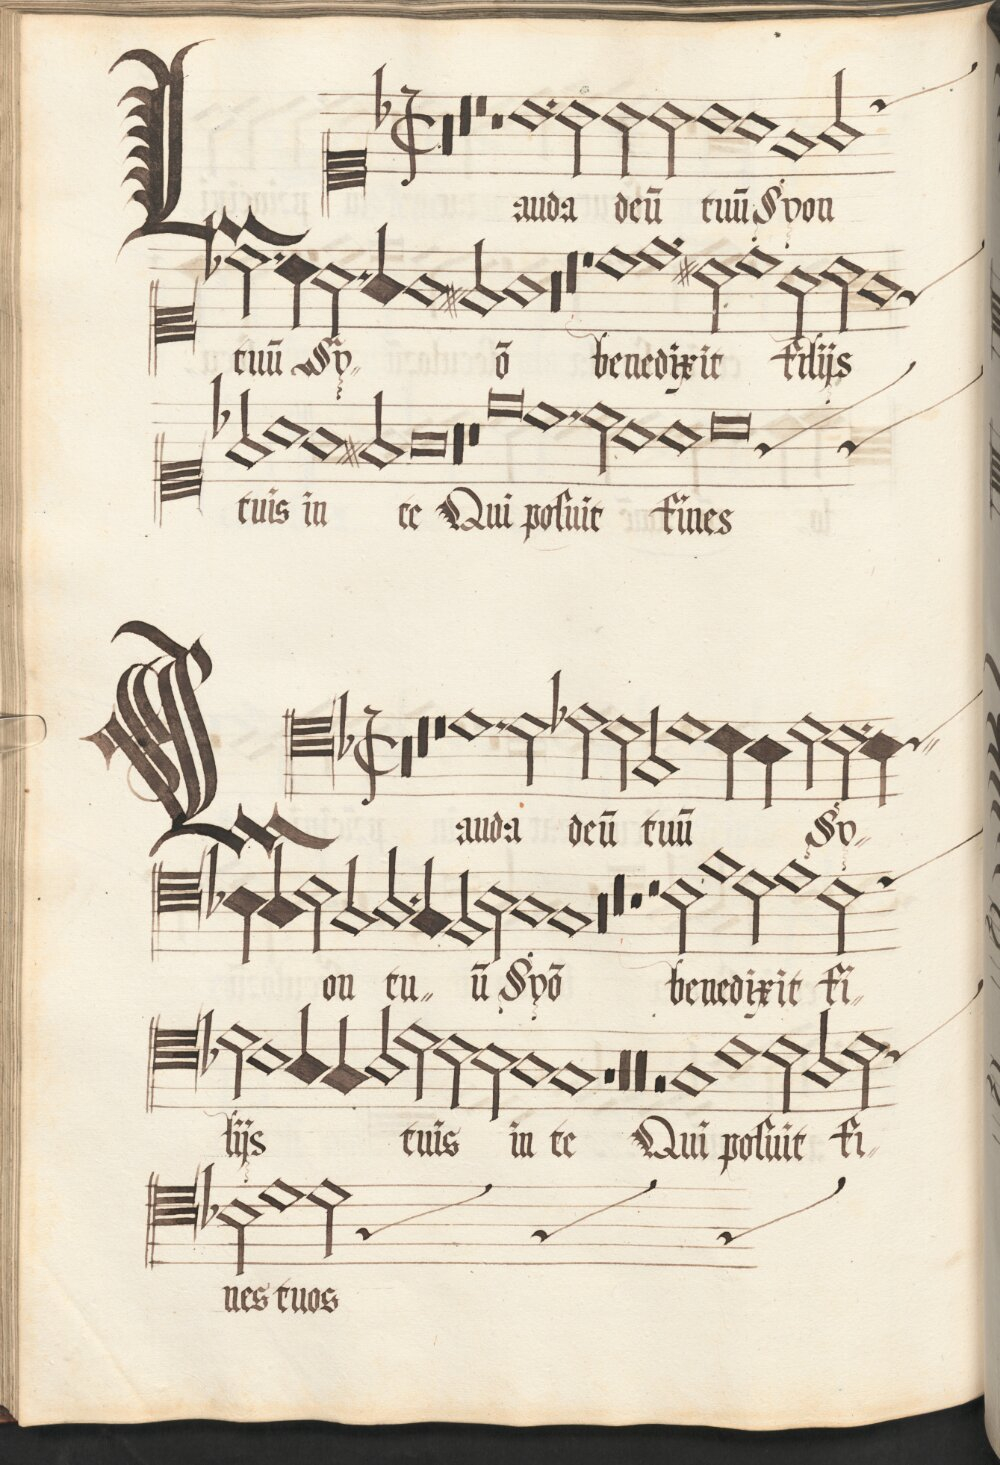 Lauda deū tuū Syon
tuū Sy„ ō benedixit filijs
tuis in te Qui posuit fines
Lauda deū tuū Sy„
on tu„ ū Syō benedixit fi„
lijs tuis in te Qui posuit fi„
nes tuos